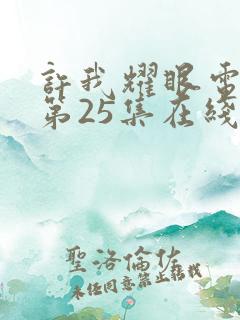 許我耀眼電
第25集在綫
聖洛倫佐
未经同意禁止轉載